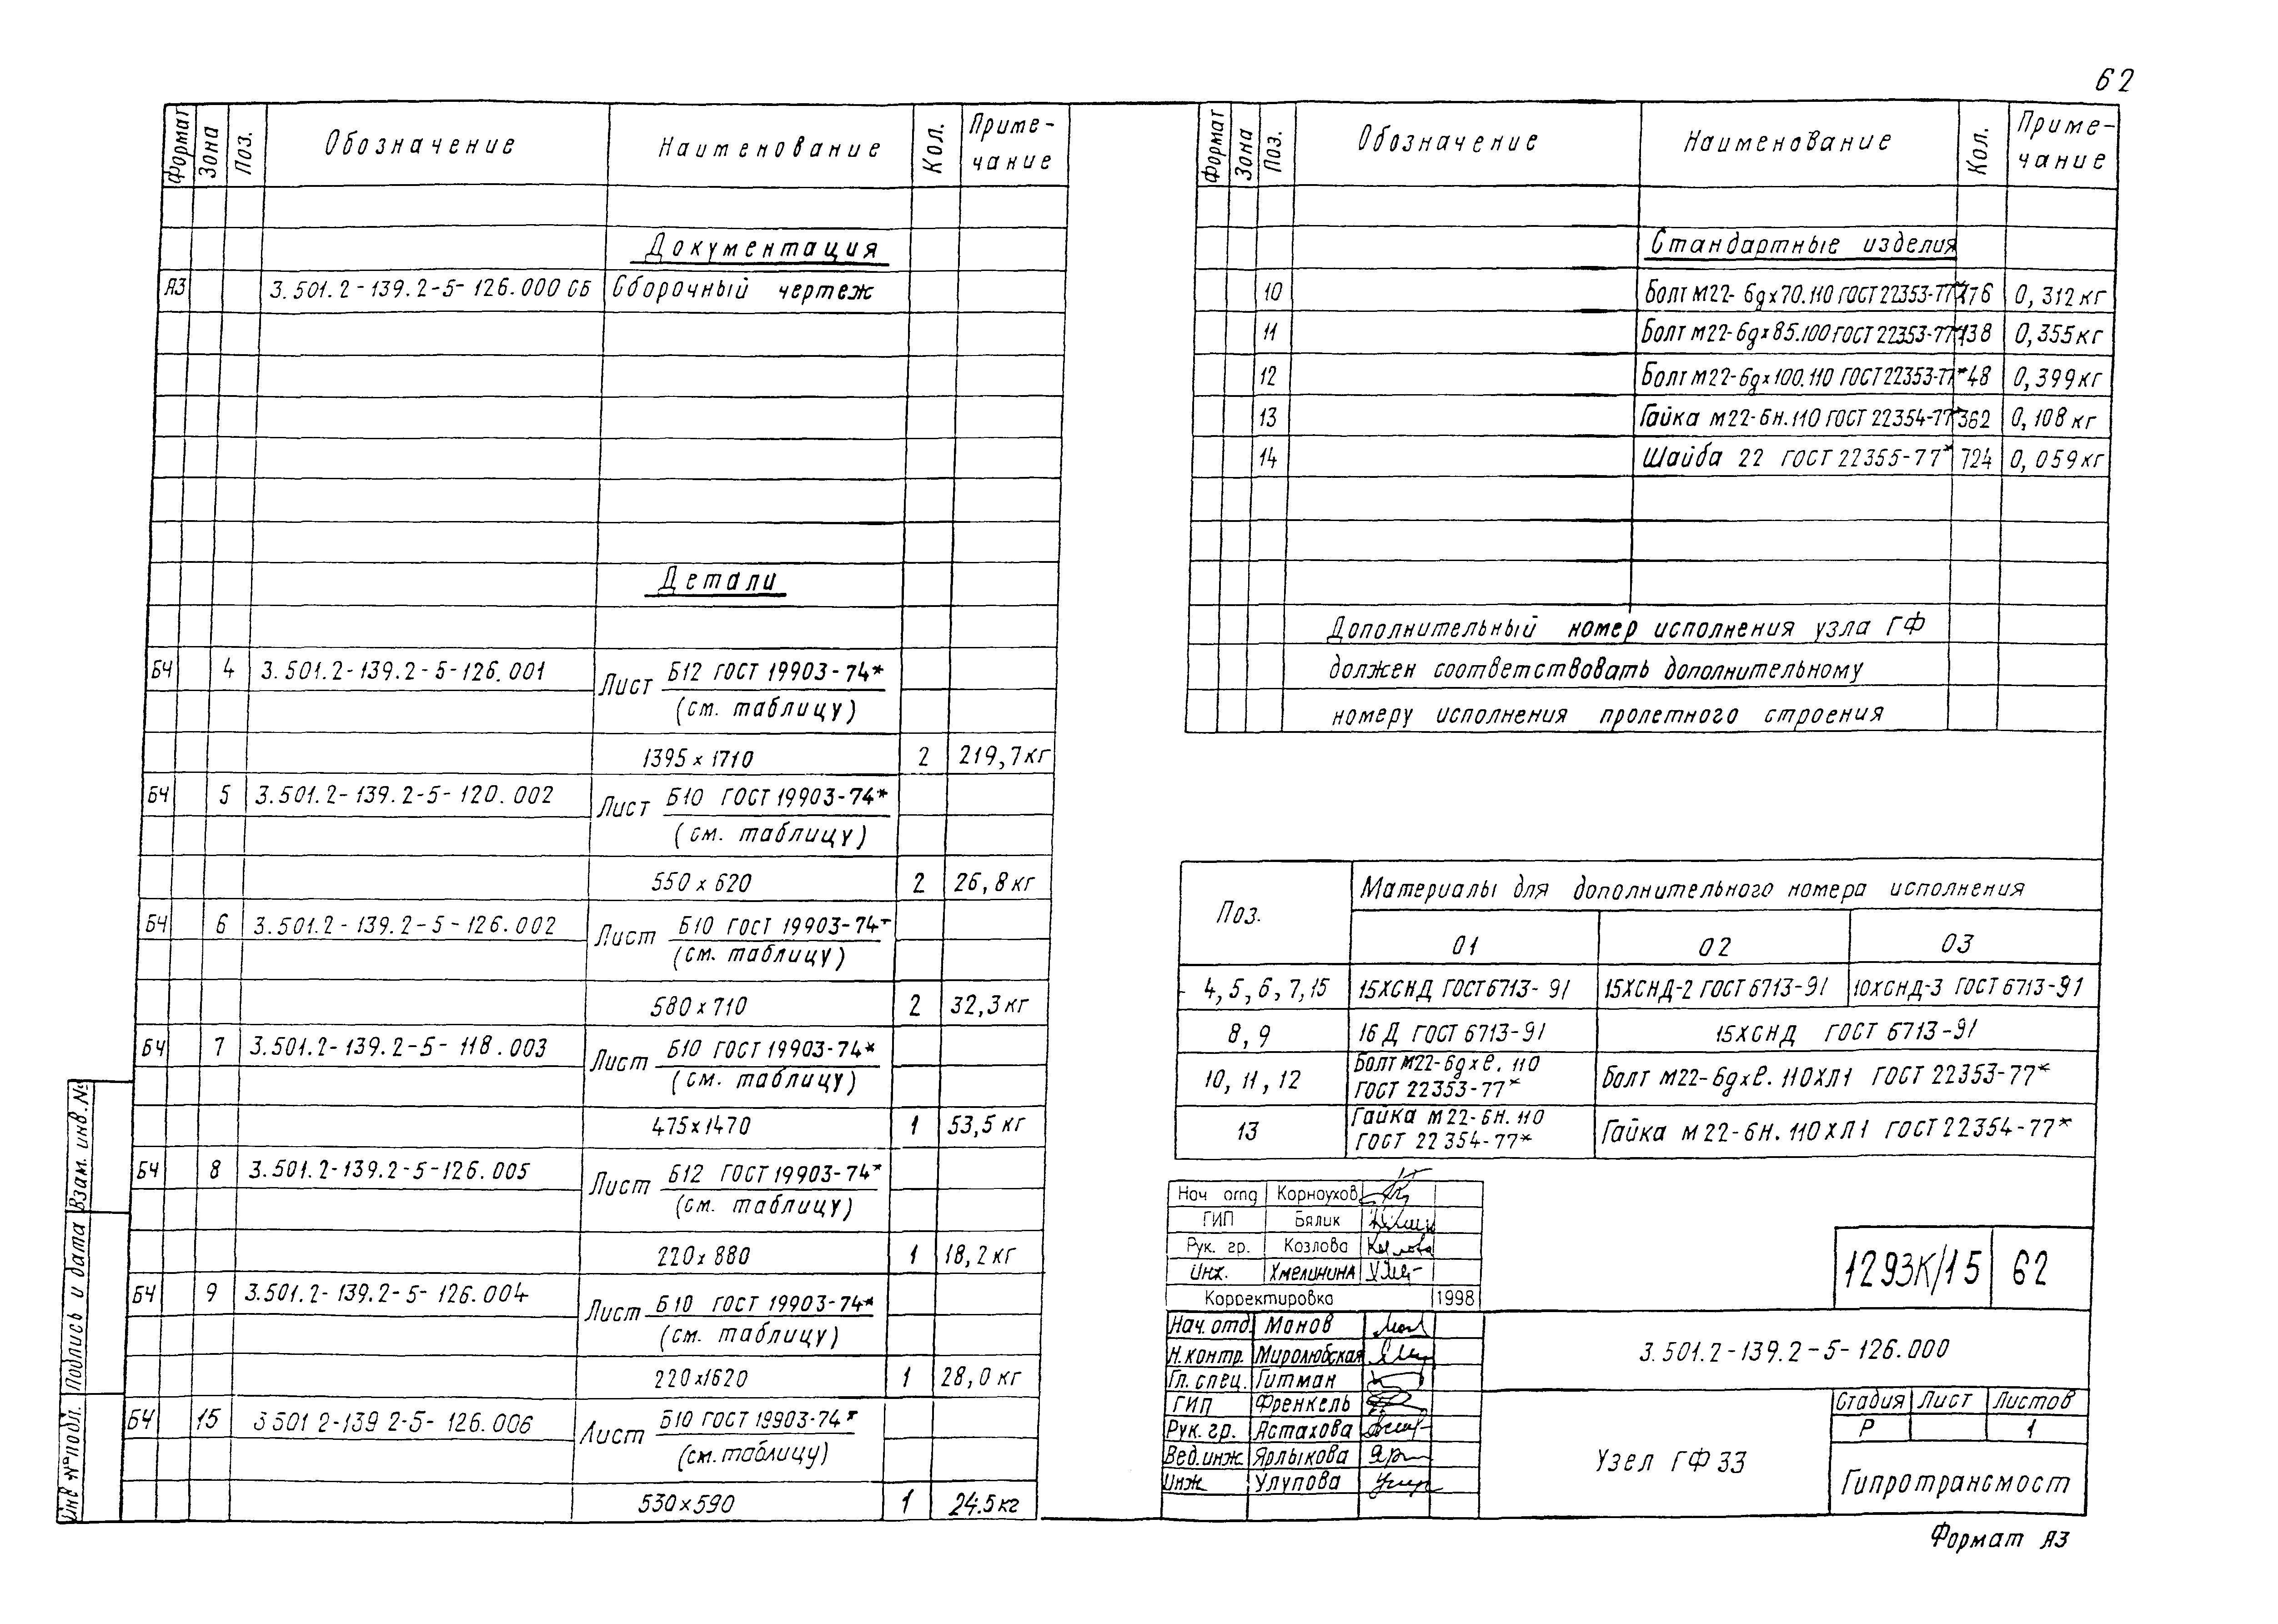 62
Формат Зона Поз. Обозначение Наименование Кол. Приме-чание
Документация
А3 3.501.2-139.2-5-126.000 СБ Сборочный чертеж
Детали
БЧ 4 3.501.2-139.2-5-126.001 Лист Б12 ГОСТ 19903-74*
(см. таблицу)
1395 х 1710 2 219,7 кг
БЧ 5 3.501.2-139.2-5-120.002 Лист Б10 ГОСТ 19903-74*
(см. таблицу)
550 х 620 2 26,8 кг
БЧ 6 3.501.2-139.2-5-126.002 Лист Б10 ГОСТ 19903-74*
(см. таблицу)
580 х 710 2 32,3 кг
БЧ 7 3.501.2-139.2-5-118.003 Лист Б10 ГОСТ 19903-74*
(см. таблицу)
475х1470 1 53,5 кг
БЧ 8 3.501.2-139.2-5-126.005 Лист Б12 ГОСТ 19903-74*
(см. таблицу)
220х 880 1 18,2 кг
БЧ 9 3.501.2-139.2-5-126.004 Лист Б10 ГОСТ 19903-74*
(см. таблицу)
220х1620 1 28,0 кг
БЧ 15 3 501 2-139 2-5-126.006 Лист Б10 ГОСТ 19903-74*
(см. таблицу)
530х590 1 24.5 кг
Взам. инв. №
Подпись и дата
Инв № подл.
Формат Зона Поз. Обозначение Наименование Кол. Приме-чание
Стандартные изделия
10 Болт м22-6gх70.110 ГОСТ 22353-77* 176 0,312 кг
11 Болт м22-6gх85.100 ГОСТ 22353-77* 138 0,355 кг
12 Болт м22-6gх100.110 ГОСТ 22353-77* 48 0,399 кг
13 Гайка м22-6н.110 ГОСТ 22354-77* 362 0,108 кг
14 Шайба 22 ГОСТ 22355-77* 724 0,059 кг
Дополнительный номер исполнения узла ГФ
должен соответствовать дополнительному
номеру исполнения пролетного строения
Поз. Материалы для дополнительного номера исполнения
01 02 03
4, 5, 6, 7, 15 15ХСНД ГОСТ 6713-91 15ХСНД-2 ГОСТ 6713-91 10ХСНД-3 ГОСТ 6713-91
8, 9 16 Д ГОСТ 6713-91 15ХСНД ГОСТ 6713-91
10, 11, 12 Болт м22-6gхℓ. 110
ГОСТ 22353-77* Болт м22-6gхℓ. 110ХЛ1 ГОСТ 22353-77*
13 Гайка м22-6н. 110
ГОСТ 22354-77* Гайка м22-6н. 110ХЛ1 ГОСТ 22354-77*
Нач отд Корноухов
ГИП Бялик
Рук. гр. Козлова
Инж. Хмелинина
Корректировка 1998
Нач. отд. Монов
Н.контр. Миролюбская
Гл. спец. Гитман
ГИП Френкель
Рук. гр. Астахова
Вед.инж. Ярлыкова
Инж Улупова
1293К/15 62
3.501.2-139.2-5-126.000
Узел ГФ 33
Стадия Лист Листов
Р 1
Гипротрансмост
Формат А3